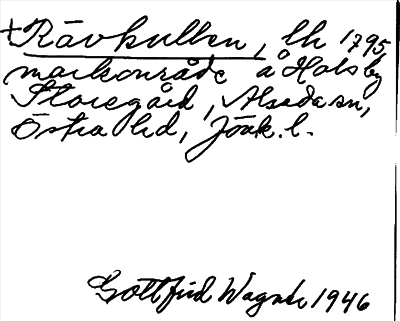 +Rävkullen, lh 1795
markområde å Holsby
Storegård, Alseda sn,
Östra hd, Jönk. l.
Gottfrid Wagnér 1946